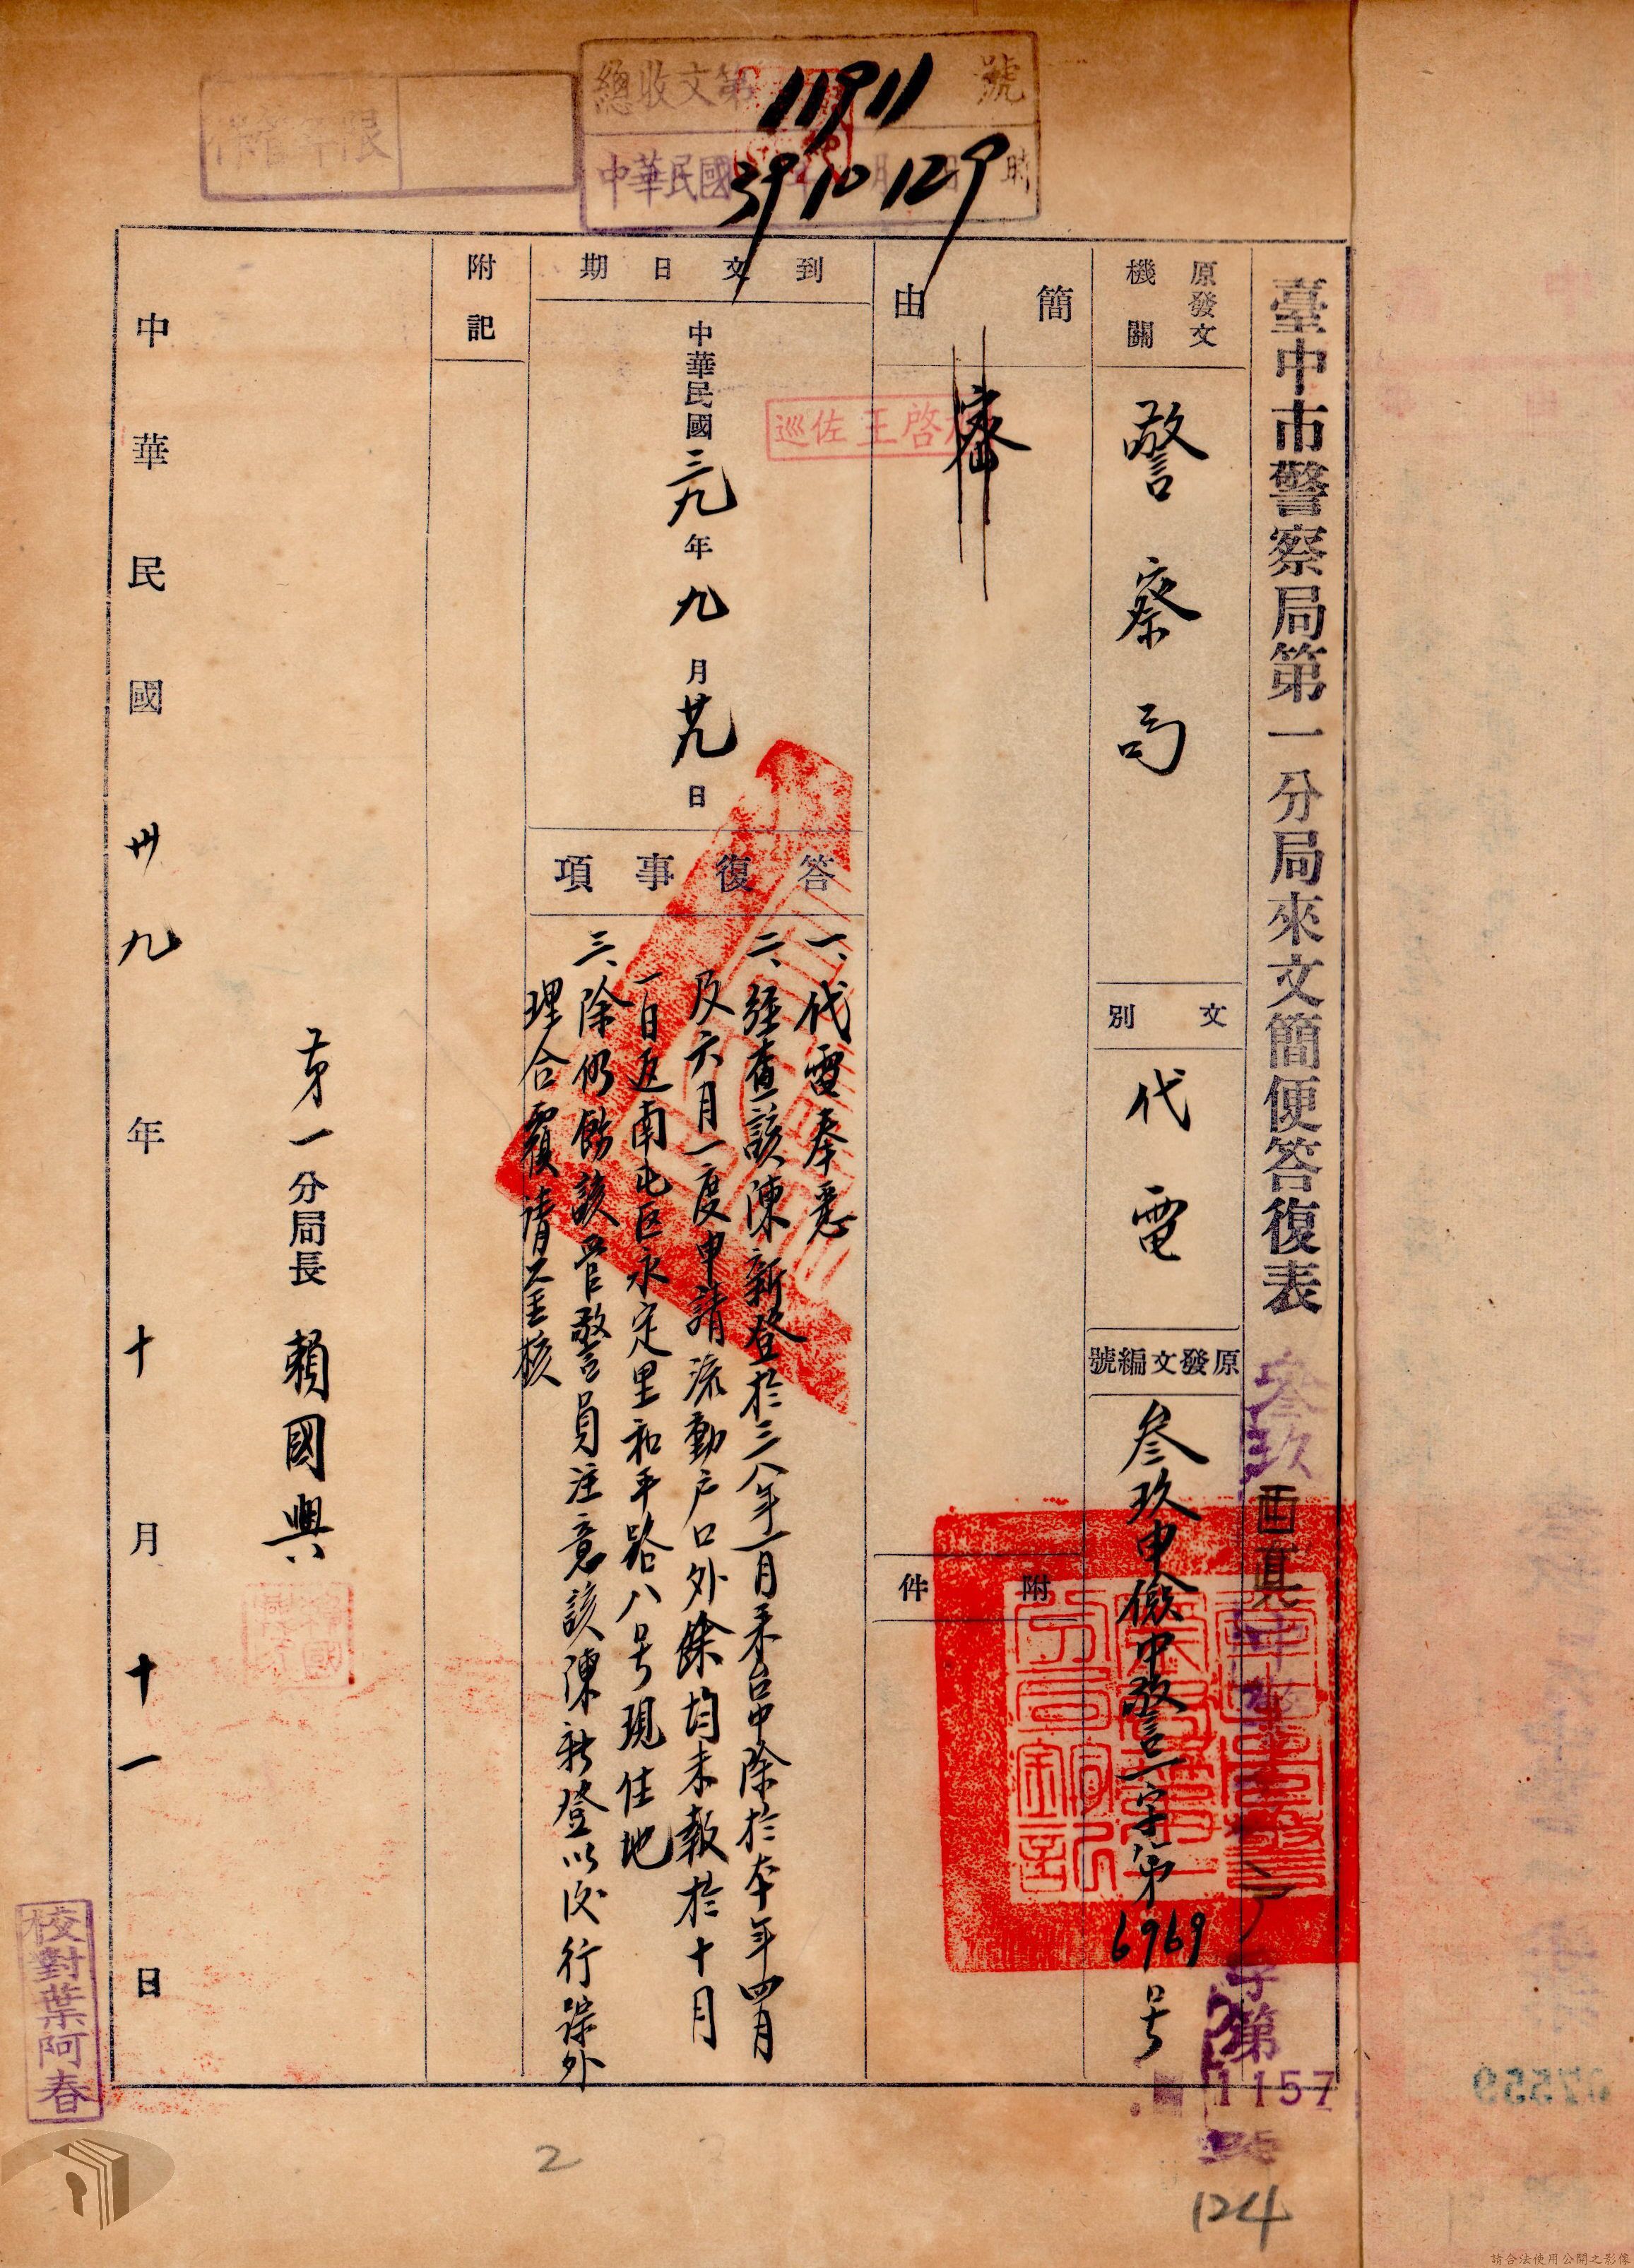 總收文第11911號
中華民國39 10 12 9時
臺中市警察局第一分局來文簡便答復表
參玖
字第
1157
號
124
原發文
機關
警察局
文別
代電
原發文編號
參玖申儉中警一字第6969号
簡由
密
附件
巡佐王啓
到文日期
中華民國三九年九月廿九日
答復事項
一、代電奉悉
二、經查該陳新登於三八年一月來台中除於本年四月
及六月一度申請流動戶口外餘均未報於十月
一日返南屯区永定里和平路八号現住地
三、除仍飭該管警員注意該陳新登以后行踪外
理合覆請鉴核
附記
第一分局長 賴國興
中華民國卅九年十月十一日
校對葉阿春
2
07559
請合法使用公開之影像